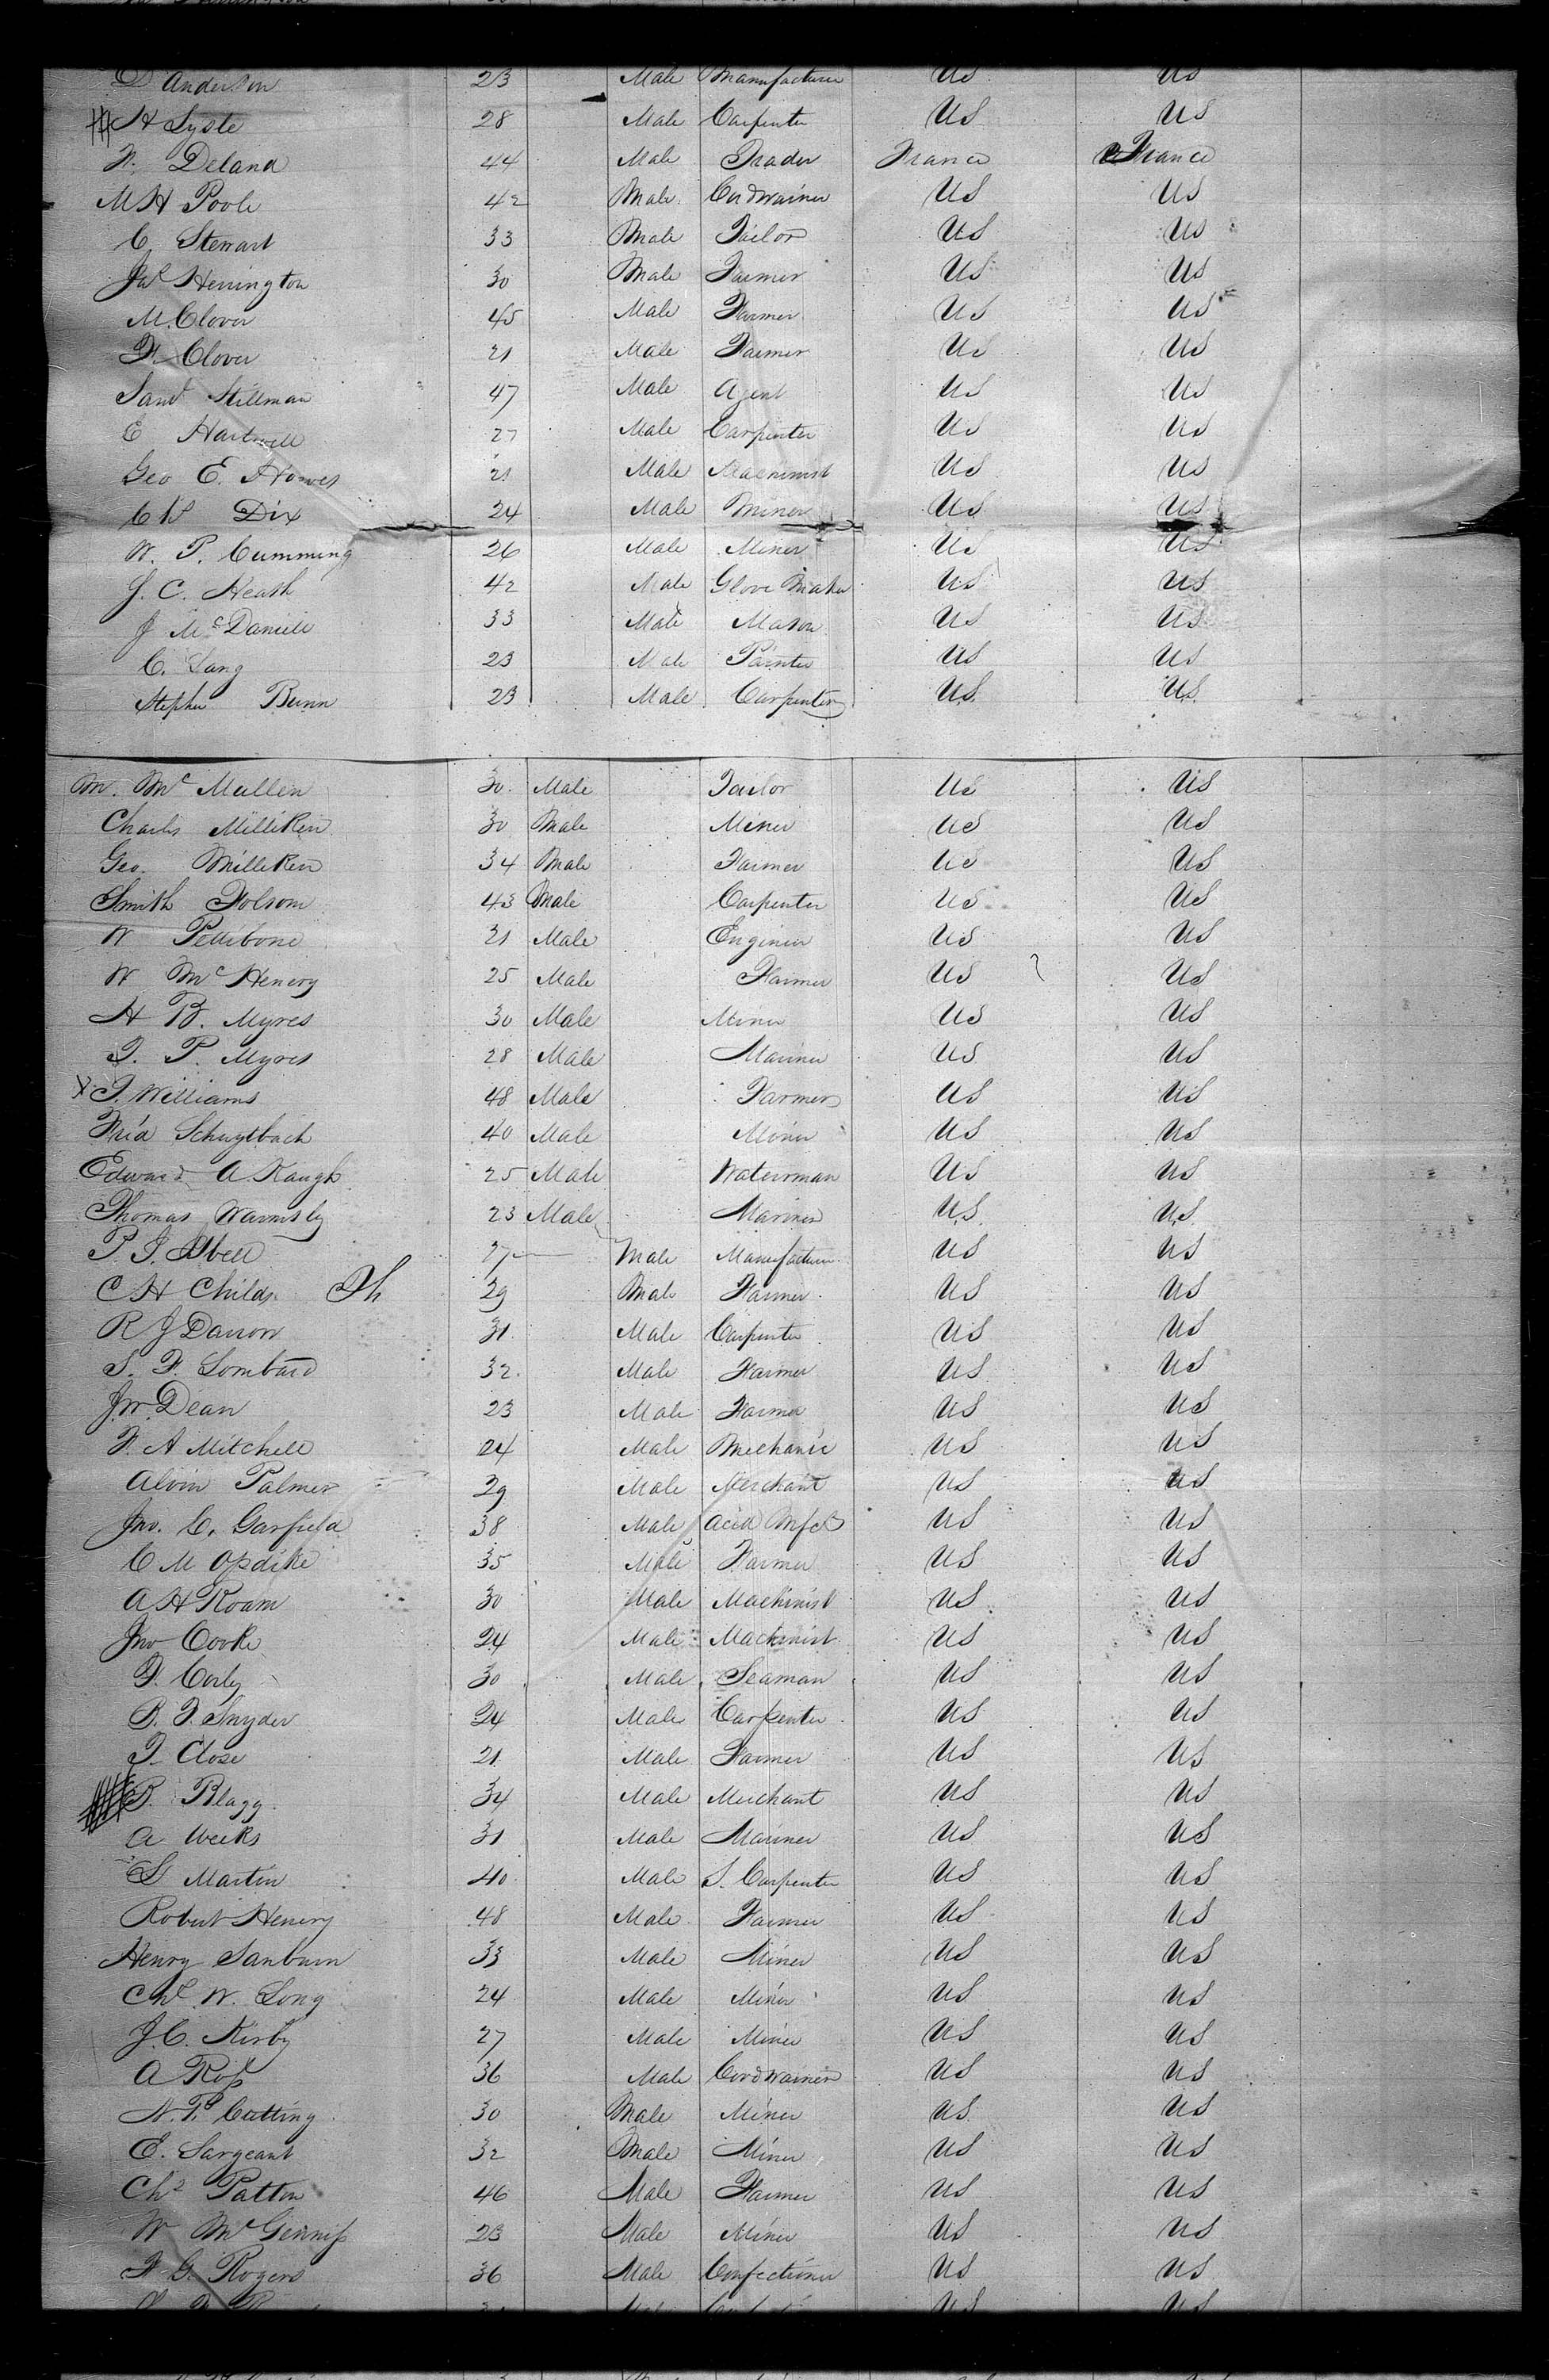 Anderson 23 Male Manufacturer US US
H Lyste 28 Male Carpenter US US
Deland 44 Male Trader France France
M H Poole 42 Male Cordwainer US US
C. Stewart 33 Male Tailor US US
Jas Herrington 30 Male Farmer US US
M. Clover 45 Male Farmer US US
F. Clover 21 Male Farmer US US
Saml Stillman 47 Male Agent US US
E Hartwell 27 Male Carpenter US US
Geo E. Howes 21 Male Machinist US US
Dix 24 Male Miner US US
W. P. Cumming 26 Male Miner US US
J. C. Heath 42 Male Glove Maker US US
J McDaniell 33 Male Mason US US
C. Lang 23 Male Painter US US
Stephen Bunn 23 Male Carpenter U.S. U.S.
Wm. Mc Mullen 30 Male Tailor US US
Charles Milliken 30 Male Miner US US
Geo. Milliken 34 Male Farmer US US
Smith Folsom 43 Male Carpenter US US
W Pettibone 21 Male Enginier US US
W Mc Henery 25 Male Farmer US US
H B. Myres 30 Male Miner US US
J. P. Myres 28 Male Mariner US US
J. Williams 48 Male Farmer US US
Fred Schugtbach 40 Male Miner US US
Edward A Kaugh 25 Male Waterman US US
Thomas Warmsly 23 Male Mariner U.S. U.S.
P. J. Abell 27 Male Manufacturer US US
C H Childs 29 Male Farmer US US
R J Darrow 31 Male Carpenter US US
S. F. Lombard 32 Male Farmer US US
J. W. Dean 23 Male Farmer US US
F. A Mitchell 24 Male Mechanic US US
Alvin Palmer 29 Male Merchant US US
Jno. C. Garfield 38 Male Acid Mfcr US US
C M Opdike 35 Male Farmer US US
A H Roam 30 Male Machinist US US
Jno Cooke 24 Male Machinist US US
Corly 30 Male Seaman US US
B. F. Snyder 24 Male Carpenter US US
Close 21 Male Farmer US US
B. Blagg 34 Male Merchant US US
A Weeks 31 Male Mariner US US
S Martin 40 Male S. Carpenter US US
Robert Henery 48 Male Farmer US US
Henry Sanburn 33 Male Miner US US
Chs W. Long 24 Male Miner US US
J. C. Kirby 27 Male Miner US US
A Ross 36 Male Cordwainer US US
N. P. Cutting 30 Male Miner US US
E. Sargeant 32 Male Miner US US
Chs Patten 46 Male Farmer US US
W McGenniss 23 Male Miner US US
F G. Rogers 36 Male Confectioner US US